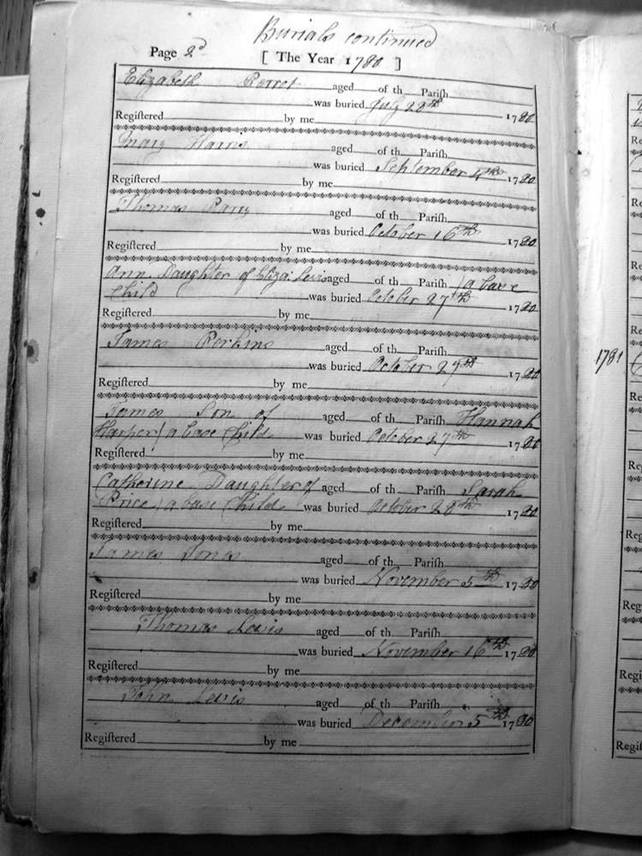 Burials continued
Page 2d [ The Year 1780 ]
Elizabeth Perrot aged of th Pariſh
was buried July 28th 1780
Regiſtered by me
Mary Harris aged of th Pariſh
was buried September 4th 1780
Regiſtered by me
Thomas Parry aged of th Pariſh
was buried October 16th 1780
Regiſtered by me
Ann Daughter of Eliza: Lewis aged of th Pariſh (a base
Child was buried October 27th 1780
Regiſtered by me
James Perkins aged of th Pariſh
was buried October 29th 1780
Regiſtered by me
James Son of aged of th Pariſh Hannah
Harper) a base Child was buried October 27th 1780
Regiſtered by me
Catherine Daughter of aged of th Pariſh Sarah
Price) a base Child was buried October 28th 1780
Regiſtered by me
James Jones aged of th Pariſh
was buried November 5th 1780
Regiſtered by me
Thomas Lewis aged of th Pariſh
was buried November 16th 1780
Regiſtered by me
John Lewis aged of th Pariſh
was buried December 5th 1780
Regiſtered by me
1781